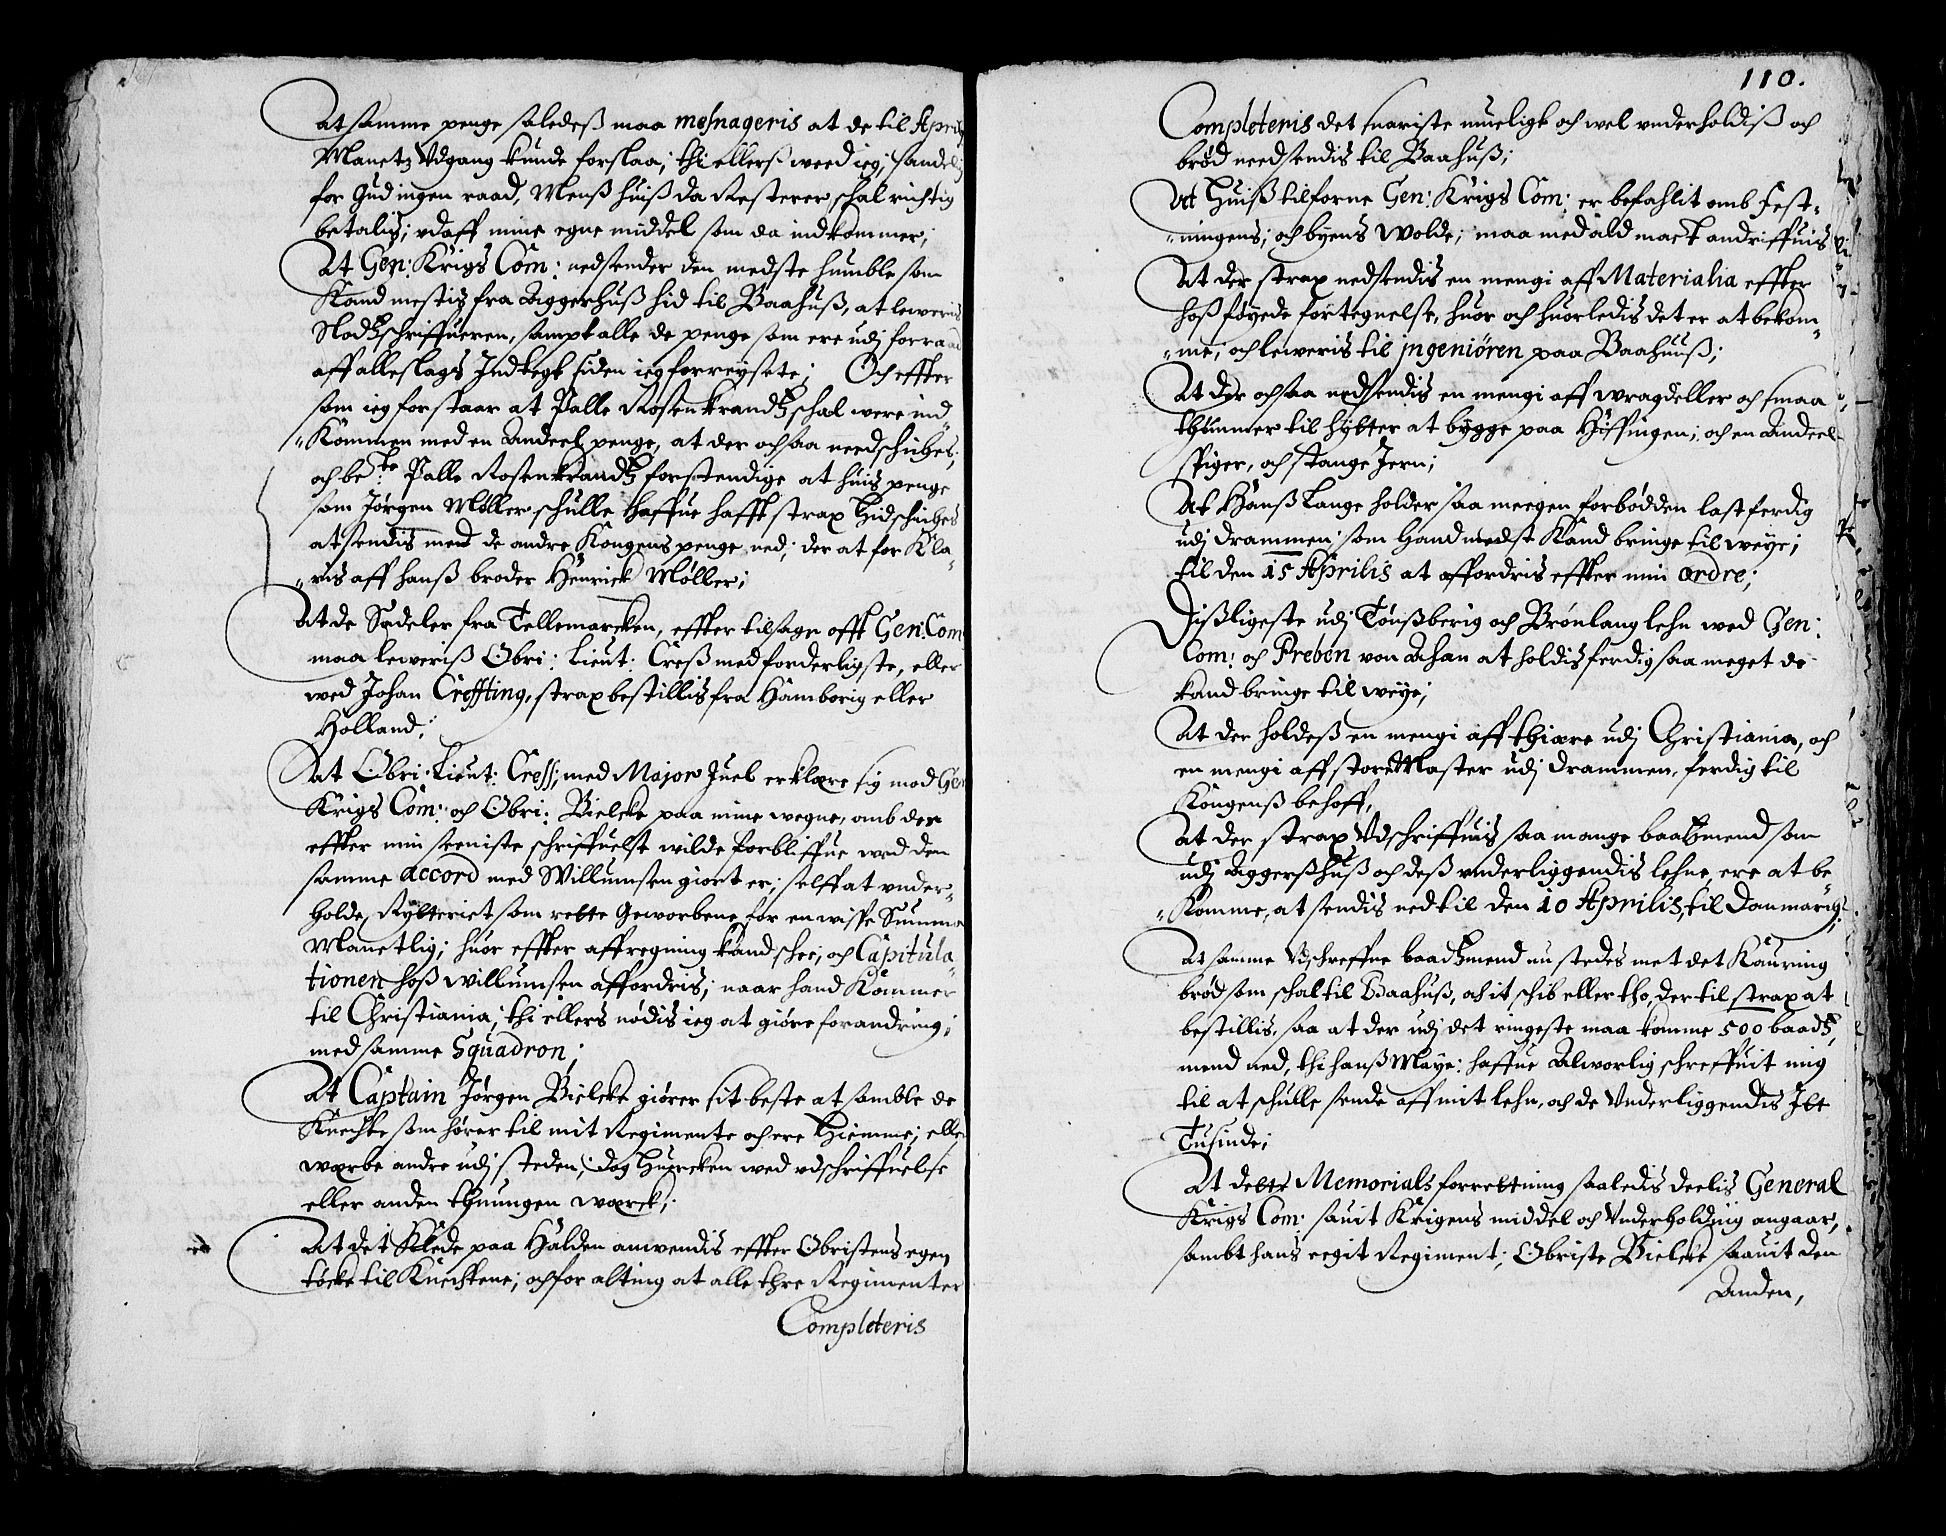 At samme penge saledeß maa mesnageris at de til Aprilis
Manetz Vdgang kunde forslaa; thi ellerß weed ieg, sandelig
for Gud ingen raad, Menß huiß da Resterer schal richtig
betalis; vdaff mine egne middel som da indkommer;
At Gen: Krigs Com: nedsender den meste humble som
Kand mestis fra Aggerhuß hid til Baahuß, at leweris
Slodtzschriffueren, sampt alle de penge som ere udj forraad
aff alleslags Indtegt siden ieg forreyste; Och effter
som ieg forstaar at Palle Rosenkrandtz schal were ind¬
"Kommen med en Andeel penge, at der ochsaa needschickes,
och be:te Palle Rosenkrandtz forstendige at huis penge
som Jørgen Møller schulle haffue hafft strax hidschickes
at sendis med de andre Kongens penge ned; der at for Kla¬
"ris aff hanß broder Henrick Møller;
At de Sadeler fra Tellemarcken, effter tilsagn offt Gen: Com
maa leweriß Obri: Lieut: Creß med forderligste, eller
wed Johan Creffting, strax bestillis fra Hamborig eller
Holland;
At Obri: Lieut: Cress; med Major Juel erklære sig mod Gen
Krigs Com: och Obri: Bielcke paa mine wegne, omb der
effter min seeniste schriffuelse wilde forbliffue wed den
samme accord med Willumsen giort er; selff at vnder¬
holde, Rytteriet som rette Geworbene for en wisse Summa
Manetlig; huor effter affregning kand schee; och Capitula¬
tionen hoß Willumsen affordris; naar hand Kommer
til Christiania; thi ellers nødis ieg at giøre forandring;
med samme Squadron;
At Captain Jørgen Bielcke giører sit beste at samble de
Knechte som hører til mit Regimente och ere hiemme; eller
werbe andre udj steden; dog huercken wed vdschriffuelse
eller anden thuungen werck;
At det Klede paa Halden anwendis effter Obristens egen
tøcke til Knechtene; och for alting at alle thre Regimenter
Completeris
110.
Completeris det snariste mueligt och wel vnderholdiß och
brød needsendis til Baahuß;
At Huiß tilforne Gen: Krigs Com: er befahlit omb Fest¬
"ningens; och byens Wolde; maa med ald mact andriffuis
At der strax nedsendis en mengi aff Materialia effter
hoßføyede fortegnelse, huor och huorledis det er at bekom¬
"me; och leweris til jngeniören paa Baahuuß;
At der ochsaa nedsendis en mengi aff wragdeller och smaa
thømmer til hytter at bygge paa Hissingen; och en Andeel
spiger, och stange Jern;
At Hanß Lange holder saa meegen forbødden last ferdig
udj Drammen som hand meedst Kand bringe til weye;
til den 15 Aprilis at affordris effter min ordre;
Dißligeste udj Tønßberig och Brønlang lehn wed Gen:
Com: och Preben von Ahan at holdis ferdig saa meget de
kand bringe til weye;
At der holdeß en mengi aff thiære udj Christiania, och
en mengi aff store Master udj Drammen, ferdig til
Kongenß behoff,
At der strax Vdschriffuis saa mange baadtzmend som
udj Aggerßhuß och deß vnderliggendis lehne, ere at be
"Komme, at sendis ned til den 10 Aprilis, til Danmarck;
At samme Vdschreffne baadtzmend nu stedes met det Kauring
brød som schal til Baahuß, och it schib eller tho, der til strax at
bestillis, saa at der udj det ringeste maa komme 500 baadtz
mend ned, thi hanß Maye: haffue Alworlig schreffuit mig
til at schulle sende aff mit lehn, och de Vnderliggendis Itt
Tusinde;
At dette Memorials forrettning saaledis deelis General
Krigs Com: sauit Krigens middel och Vnderholding angaar,
sambt hans eegit Regiment; Obriste Bielcke saauit den
Anden,